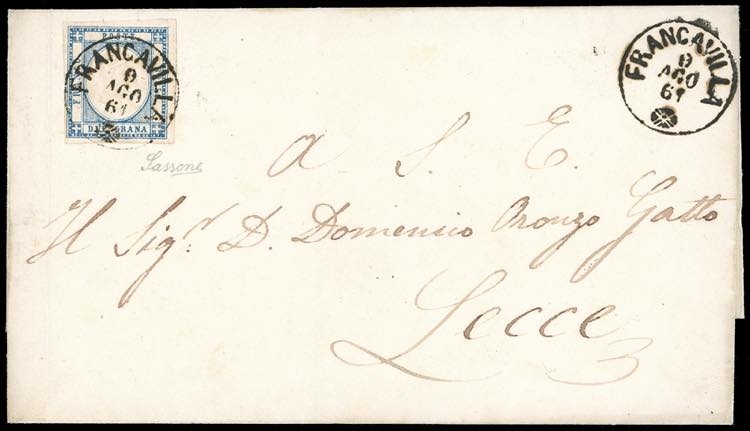 POSTA
FRANCAVILLA
9
AGO
61
GRANA
Sassone
FRANCAVILLA
9
AGO
61
A S. E.
Il Sig.r D. Domenico Oronzo Gatto
Lecce